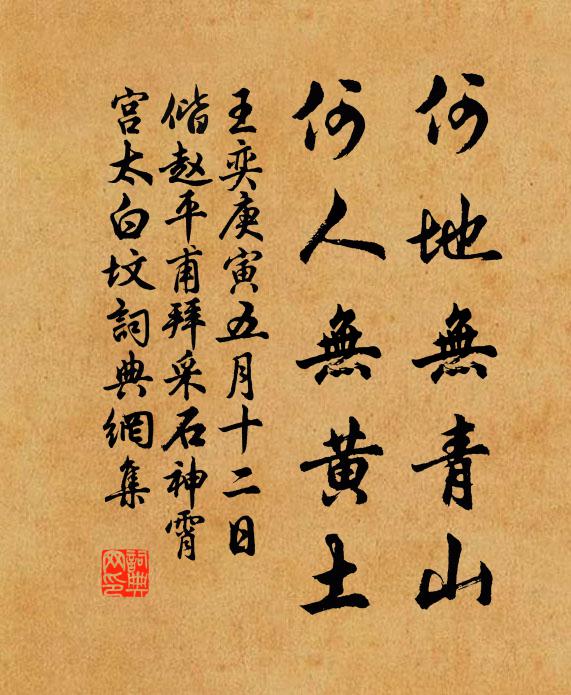 何地無青山
何人無黄土
王奕庚寅五月十二日
偕赵平甫拜采石神霄
宫太白坟詞典網集
詞典网印